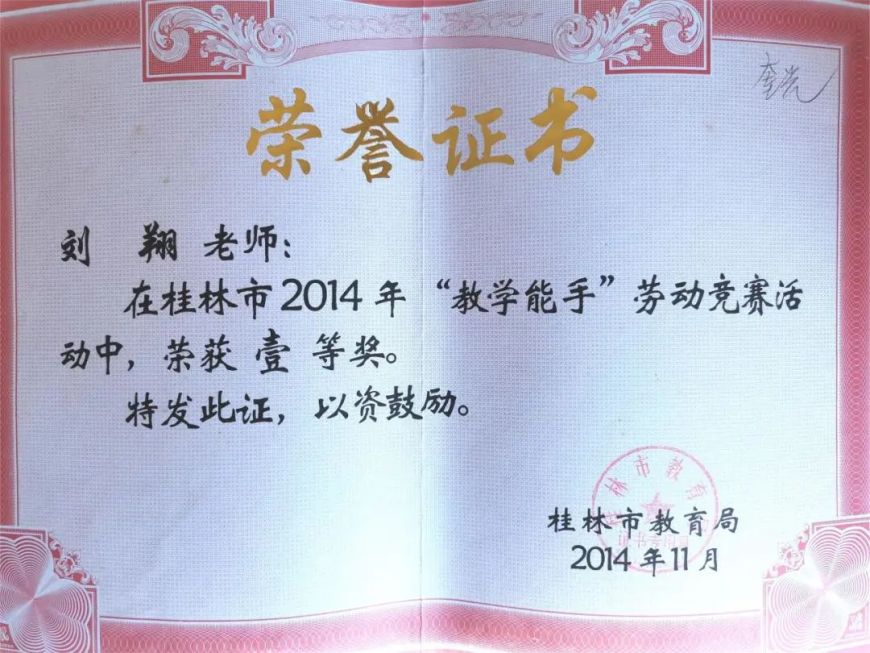 荣誉证书
刘 翔 老师：
在桂林市2014年“教学能手”劳动竞赛活
动中，荣获 壹 等奖。
特发此证，以资鼓励。
桂林市教育局
2014年11月
桂林市教育局